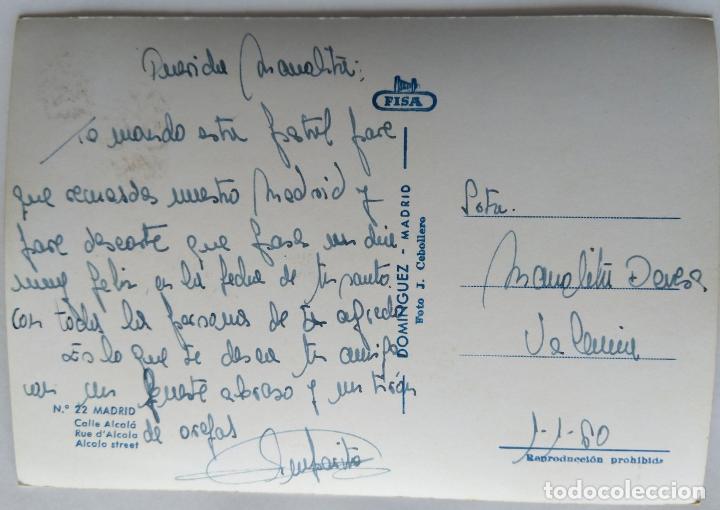 Querida Manolita:
Te mando esta postal para
que recuerdes nuestro Madrid y
para desearte que pases un dia
muy feliz en la fecha de tu santo
con toda la persona de tu agrado
Es lo que te desea tu amiga
con un fuerte abrazo y un tirón
de orejas
Amparito
Nº 22 MADRID
Calle Alcalá
Rue d'Alcala
Alcala street
FISA
DOMINGUEZ - MADRID
Foto J. Cebollero
Srta.
Manolita
Valencia
1-1-60
Reproducción prohibida
todocoleccion.net